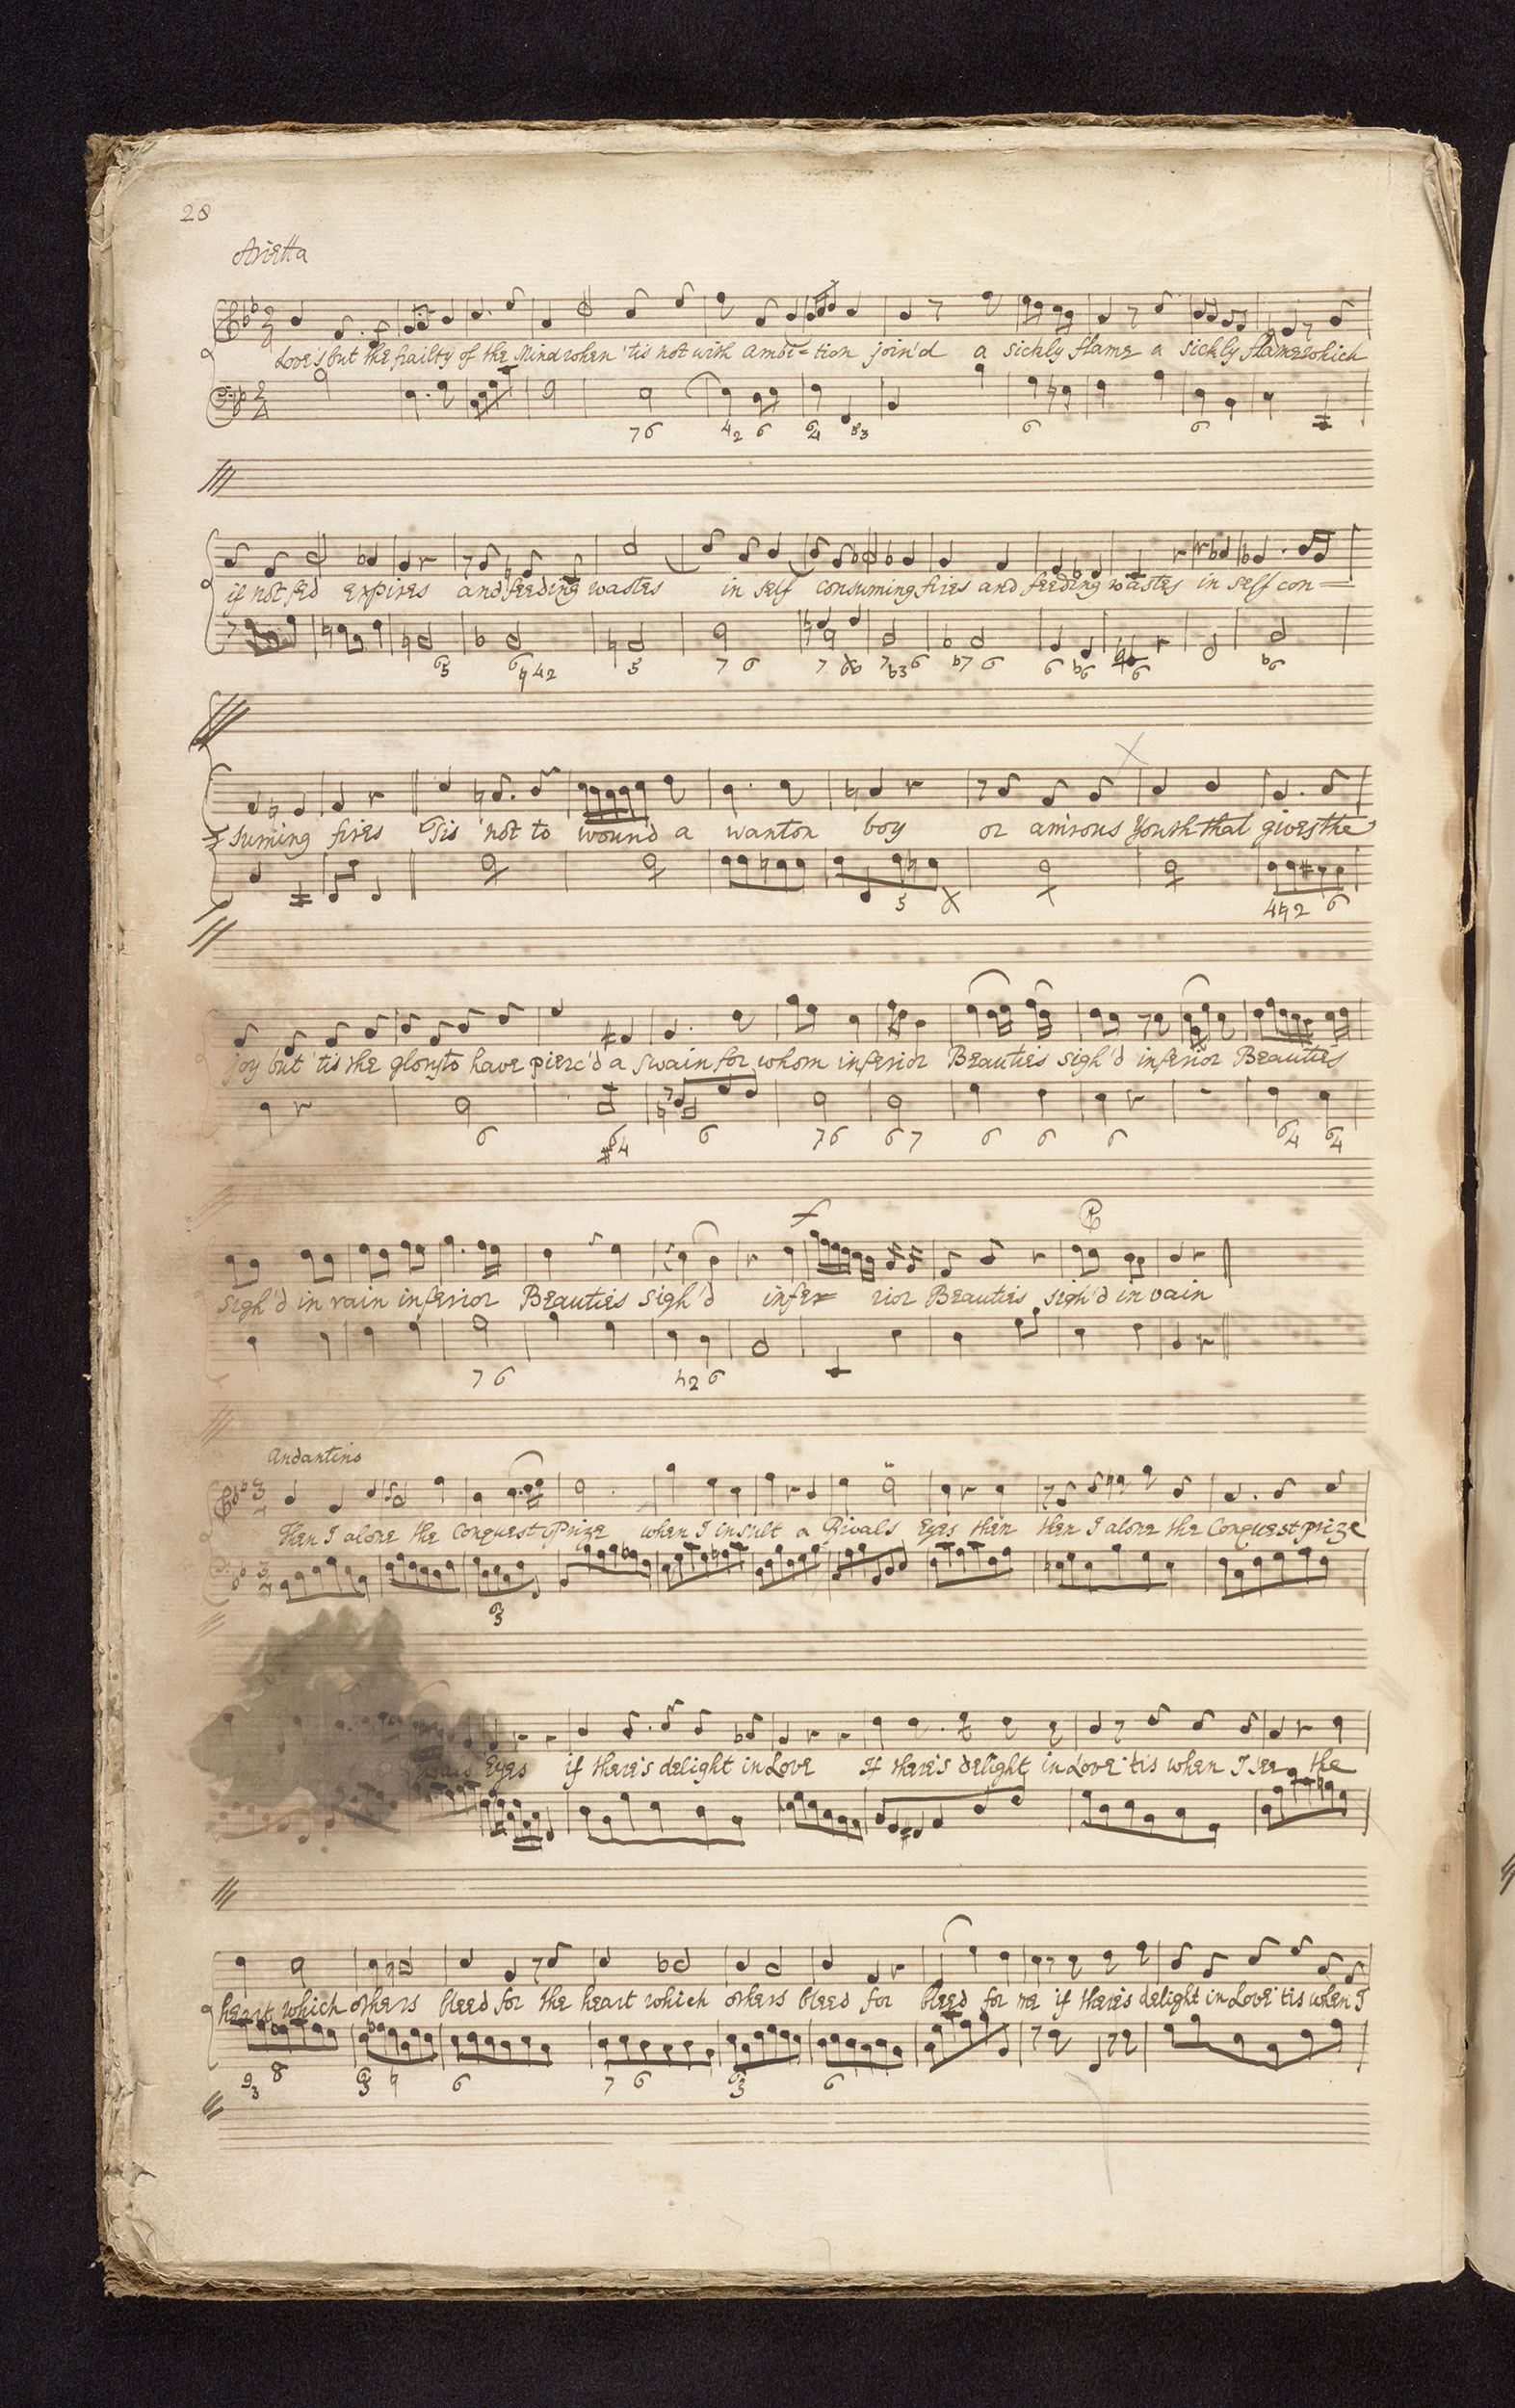 28
Arietta
Love's but the frailty of the Mind when 'tis not with Ambi=tion join'd a sickly flame a sickly flame which
7 6 4 2 6 6 4 5 3 6 6
if not fed expires and feeding wastes in self consuming fires and feeding wastes in self con=
=suming fires 'Tis not to wound a wanton boy or am'rous Youth that gives the
joy but 'tis the glory to have pierc'd a Swain for whom inferior Beauties sigh'd inferior Beauties
6 6 4 6 7 6 6 7 6 6 6 6 4 6 4
sigh'd in vain inferior Beauties sigh'd infe= rior Beauties sigh'd in vain
7 6 4 2 6
Andantino
Then I alone the Conquest Prize when I insult a Rivals Eyes then then I alone the Conquest prize
6 3
Eyes if there's delight in Love If there's delight in Love 'tis when I see the
heart which others bleed for the heart which others bleed for bleed for me if there's delight in Love 'tis when I
9 3 8 6 3 6 7 6 6 3 6